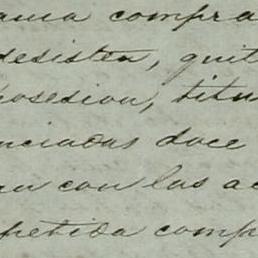 compra
desisten, quit
posesion, titu
nciadas doce
con las ac
petida comp